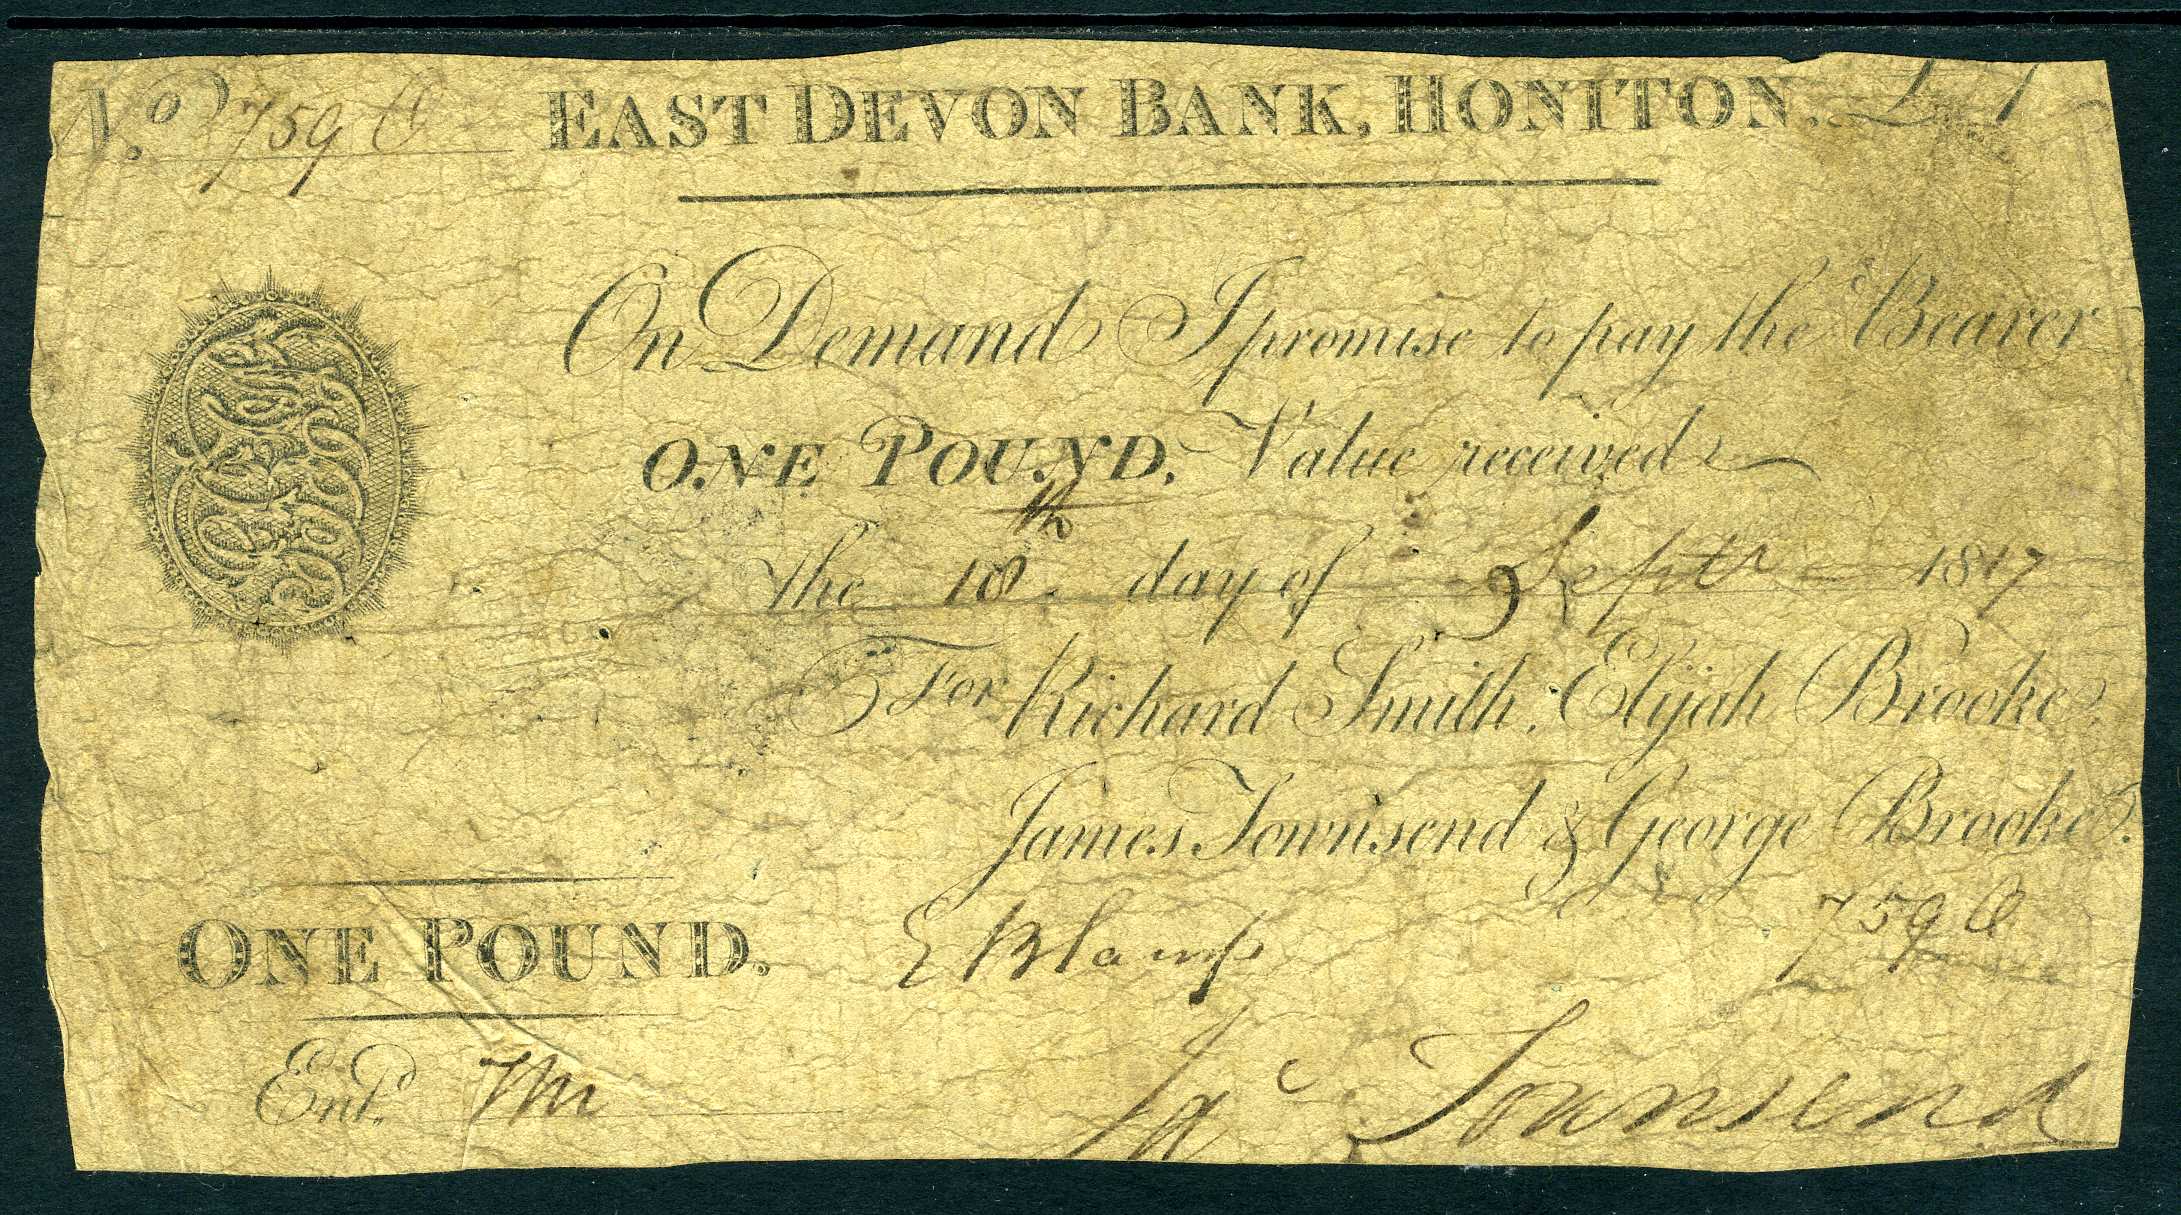 No. 7590 EAST DEVON BANK, HONITON. £ 1
On Demand I promise to pay the Bearer
ONE POUND. Value received
the 18th day of Septr 1817
For Richard Smith, Elijah Brooke,
James Townsend & George Brooke.
E Blamp 7590
ONE POUND.
Entd.
Jas Townsend